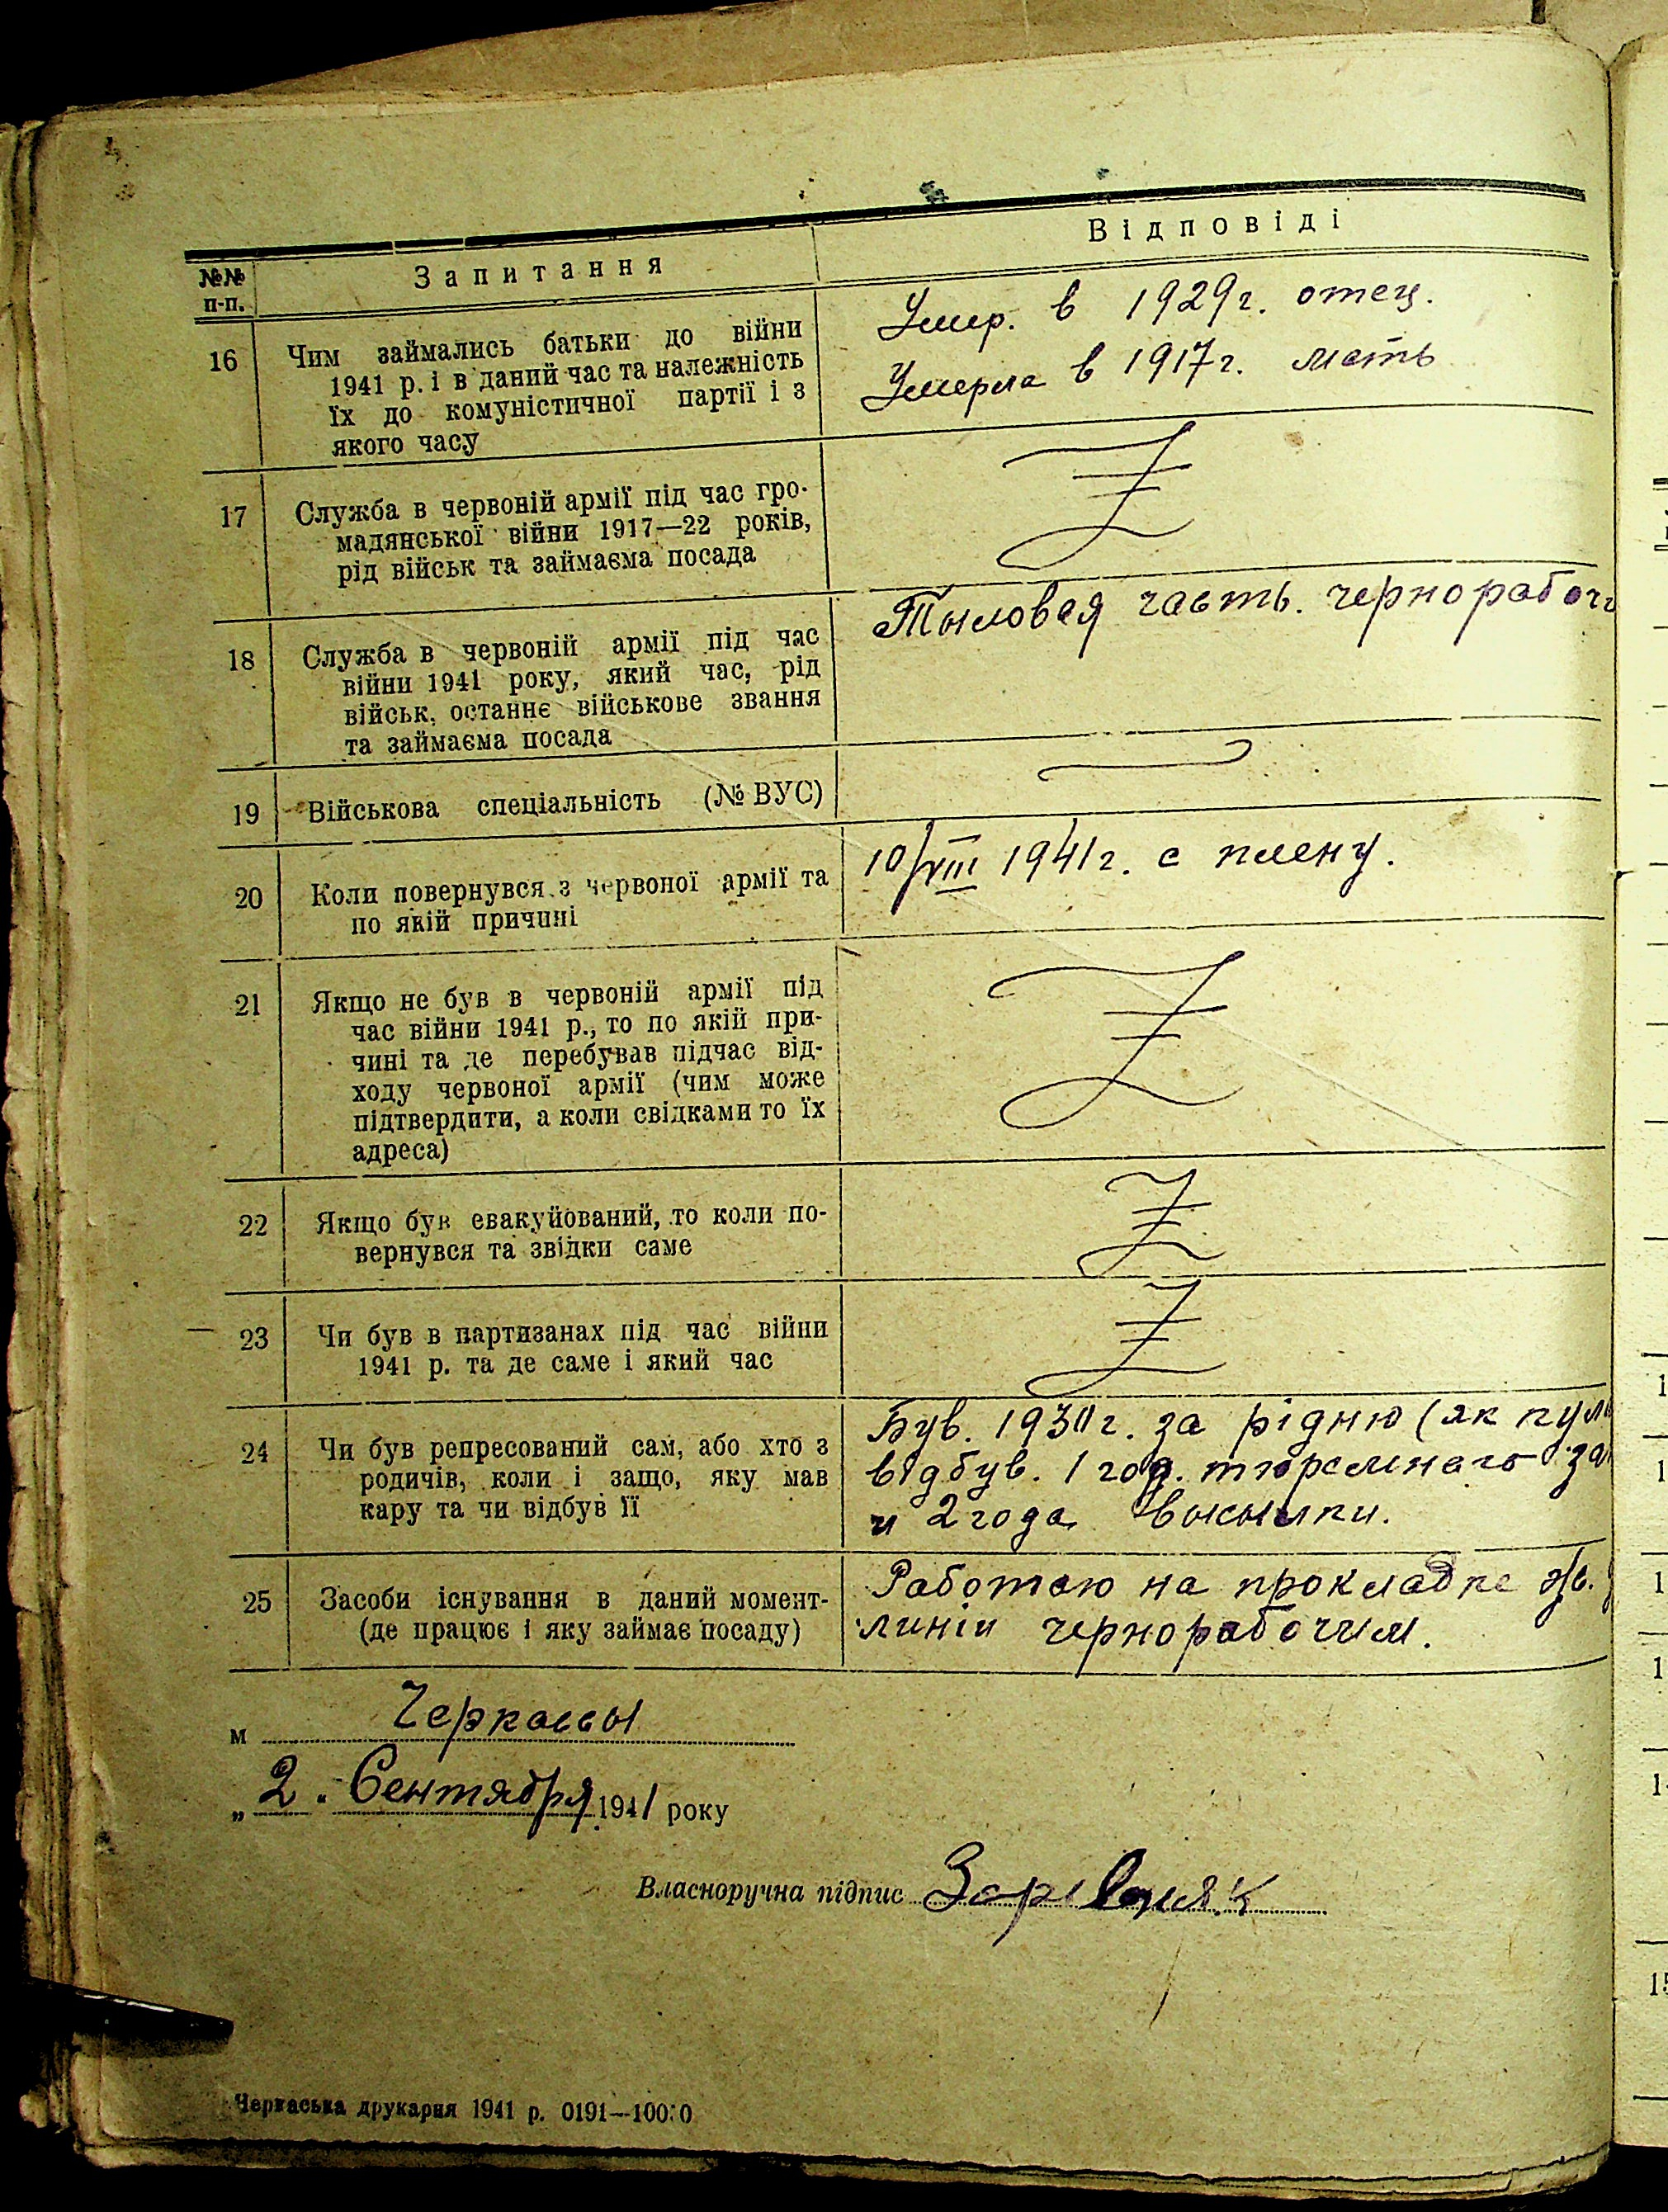 №№ п-п.
Запитання
Відповіді
16
Чим займались батьки до війни
1941 р. і в даний час та належність
їх до комуністичної партії і з
якого часу
Умер. в 1929 г. отец.
Умерла в 1917 г. мать
17
Служба в червоній армії під час гро-
мадянської війни 1917—22 років,
рід військ та займаєма посада
18
Служба в червоній армії під час
війни 1941 року, який час, рід
військ, останнє військове звання
та займаєма посада
Тыловая часть. чернорабоч
19
Військова спеціальність (№ ВУС)
20
Коли повернувся з червоної армії та
по якій причині
10/VIII 1941 г. с плену.
21
Якщо не був в червоній армії під
час війни 1941 р., то по якій при-
чині та де перебував підчас від-
ходу червоної армії (чим може
підтвердити, а коли свідками то їх
адреса)
22
Якщо був евакуйований, то коли по-
вернувся та звідки саме
23
Чи був в партизанах під час війни
1941 р. та де саме і який час
24
Чи був репресований сам, або хто з
родичів, коли і защо, яку мав
кару та чи відбув її
Був. г. за рідню (як
відбув. 1 год. тюремного за
и 2 года высылки.
25
Засоби існування в даний момент-
(де працює і яку займає посаду)
Работаю на прокладке
линіи чернорабочим.
м Черкассы
„2" Сентября 1941 року
Власноручна підпис
Черкаська друкарня 1941 р. 0191—10000